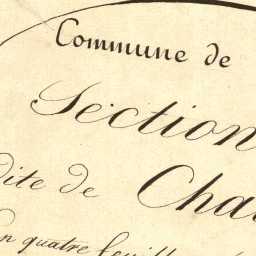 Commune de
Section
dite de Cha
en quatre feuilles